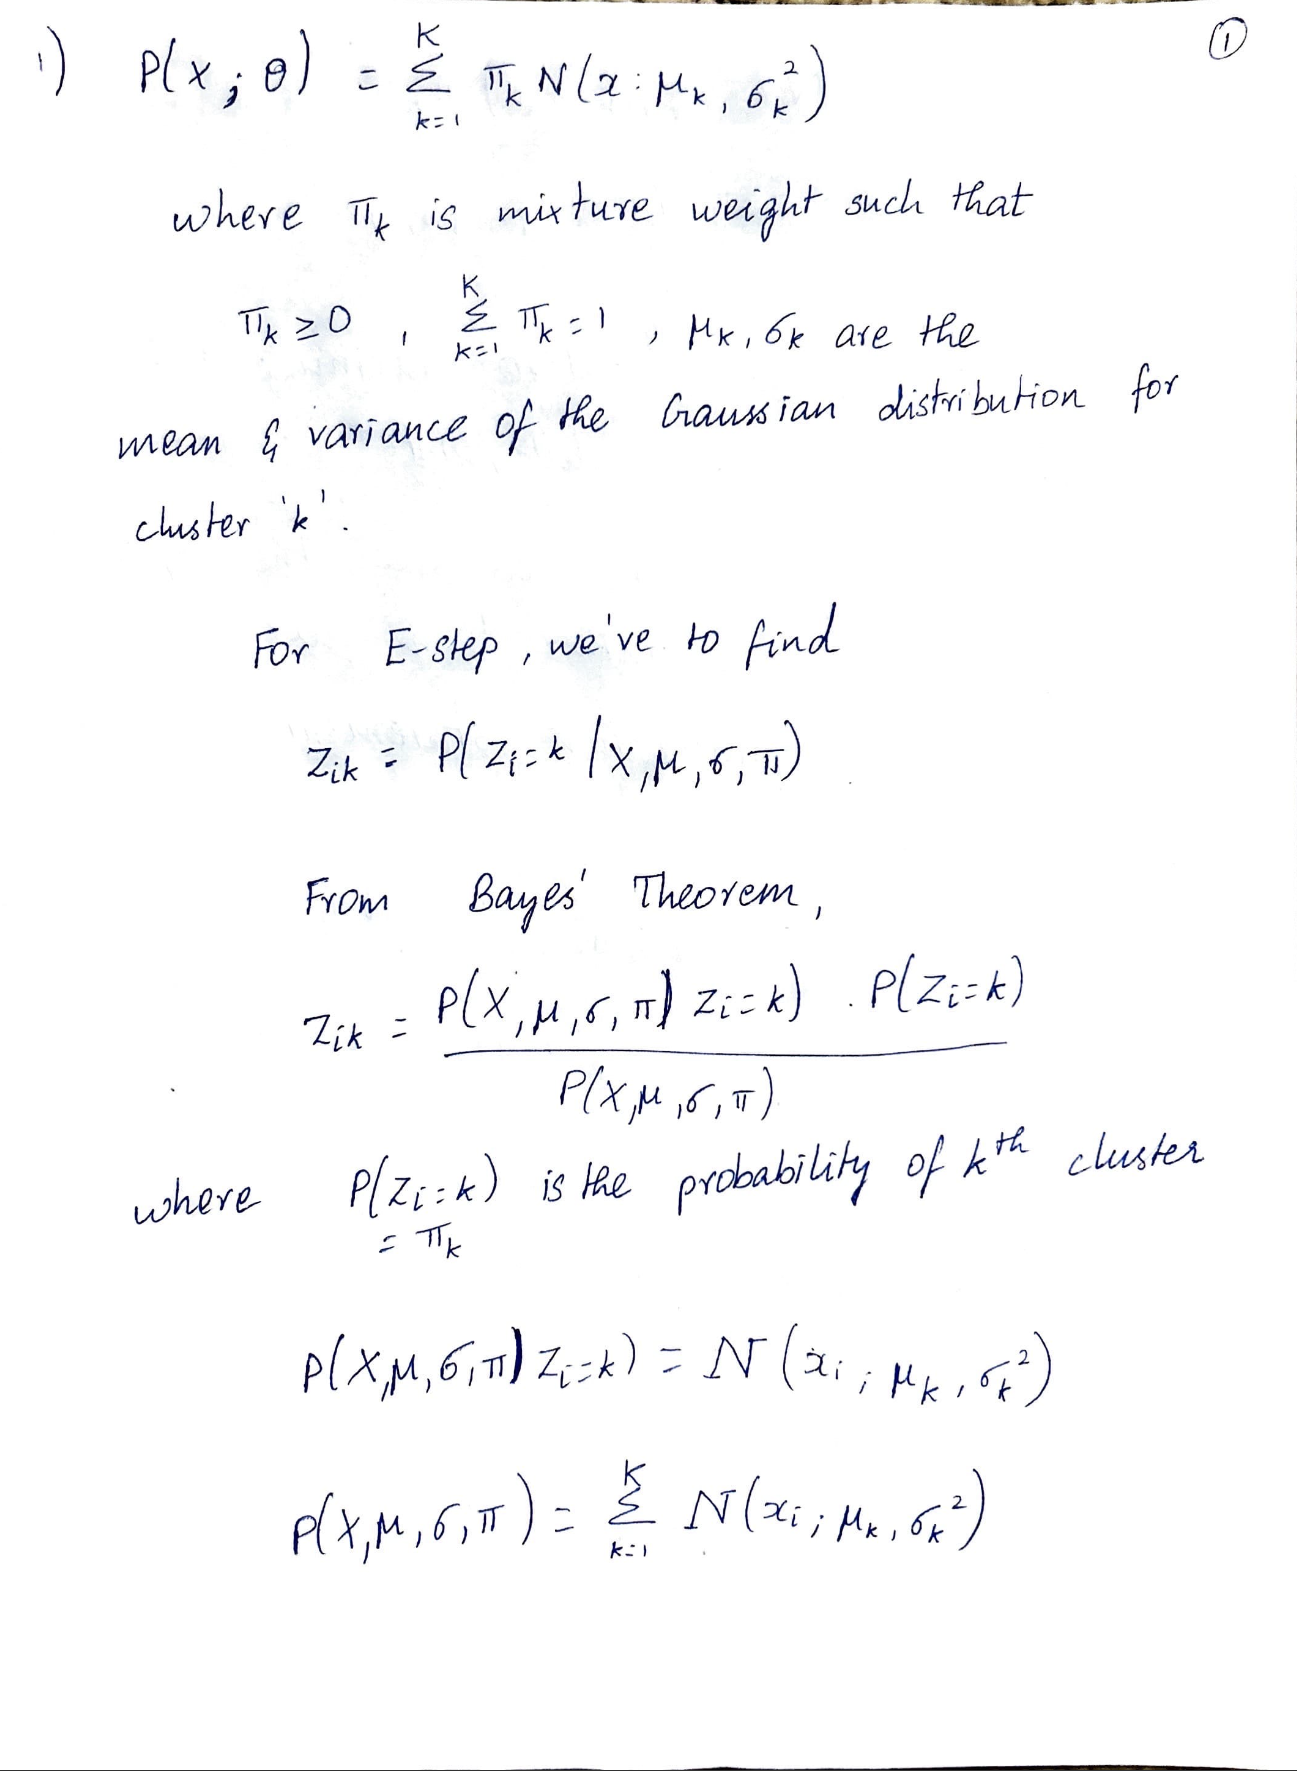 ①
1) P(x; θ) = Σ_{k=1}^{K} π_k N(x: μ_k, σ_k²)
where π_k is mixture weight such that
π_k ≥ 0 , Σ_{k=1}^{K} π_k = 1 , μ_k, σ_k are the
mean & variance of the Gaussian distribution for
cluster 'k'.
For E-step, we've to find
Z_ik = P(Z_i=k / X, μ, σ, π)
From Bayes' Theorem,
Z_ik = P(X, μ, σ, π | Z_i=k) . P(Z_i=k)
P(X, μ, σ, π)
where P(Z_i=k) is the probability of kth cluster
= π_k
P(X, μ, σ, π | Z_i=k) = N(x_i ; μ_k, σ_k²)
P(X, μ, σ, π) = Σ_{k=1}^{K} N(x_i ; μ_k, σ_k²)